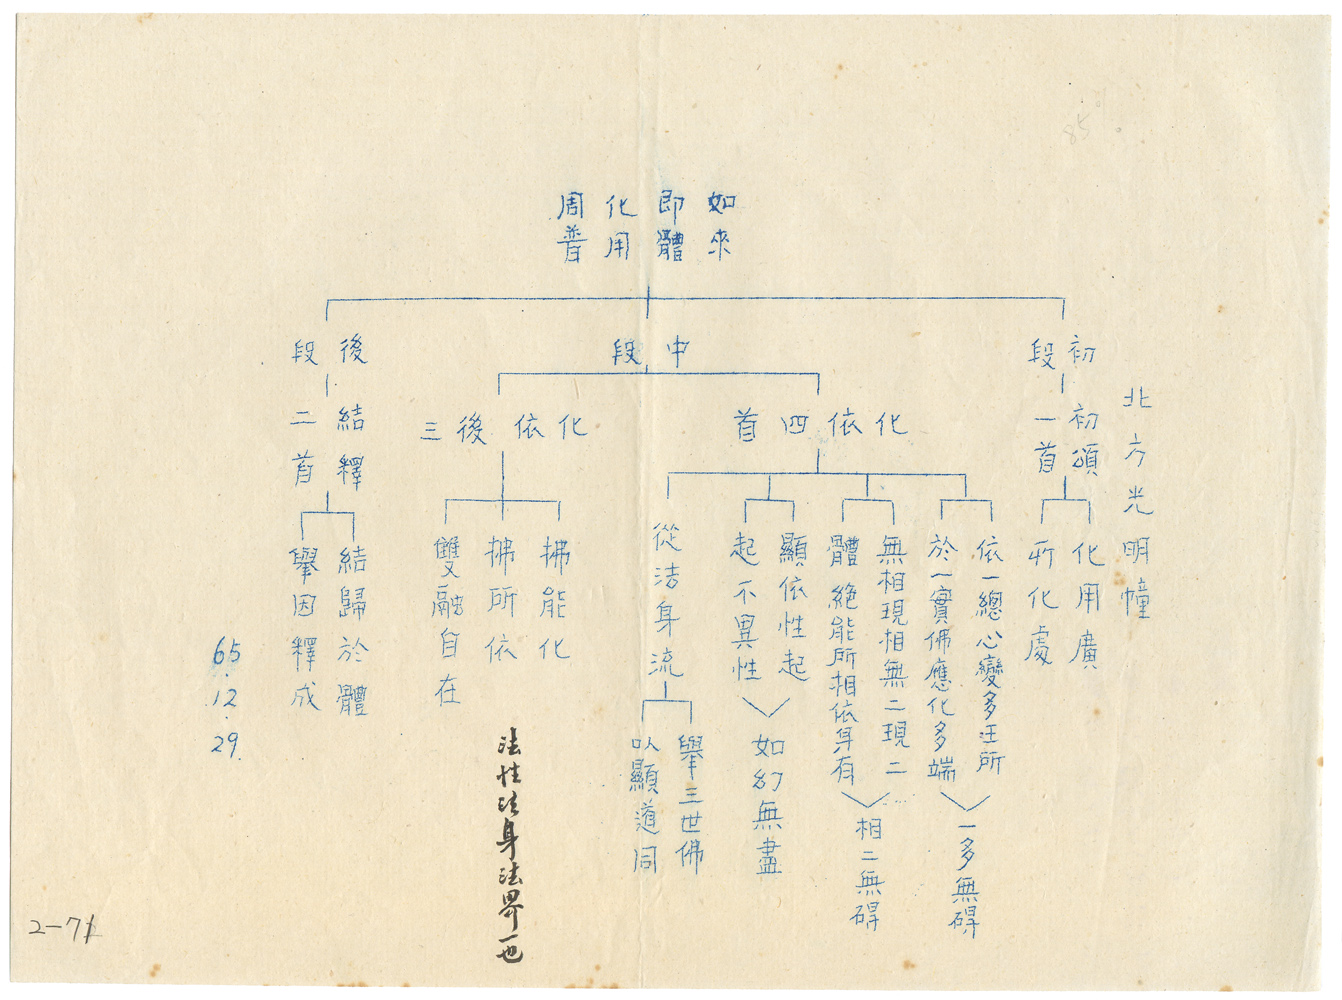 85
北方光明幢
如來
即體
化用
周普
初段
初頌
一首
化用廣
所化處
中段
化依四首
依一總心變多王所
於一實佛應化多端
一多無礙
無相現相無二現二
體絕能所相依身有
相二無礙
顯依性起
起不異性
如幻無盡
從法身流
舉三世佛
以顯道同
化依後三
拂能化
拂所依
雙融自在
法性法身法界一也
後段
結釋
二首
結歸於體
舉因釋成
65.
12.
29.
2-71